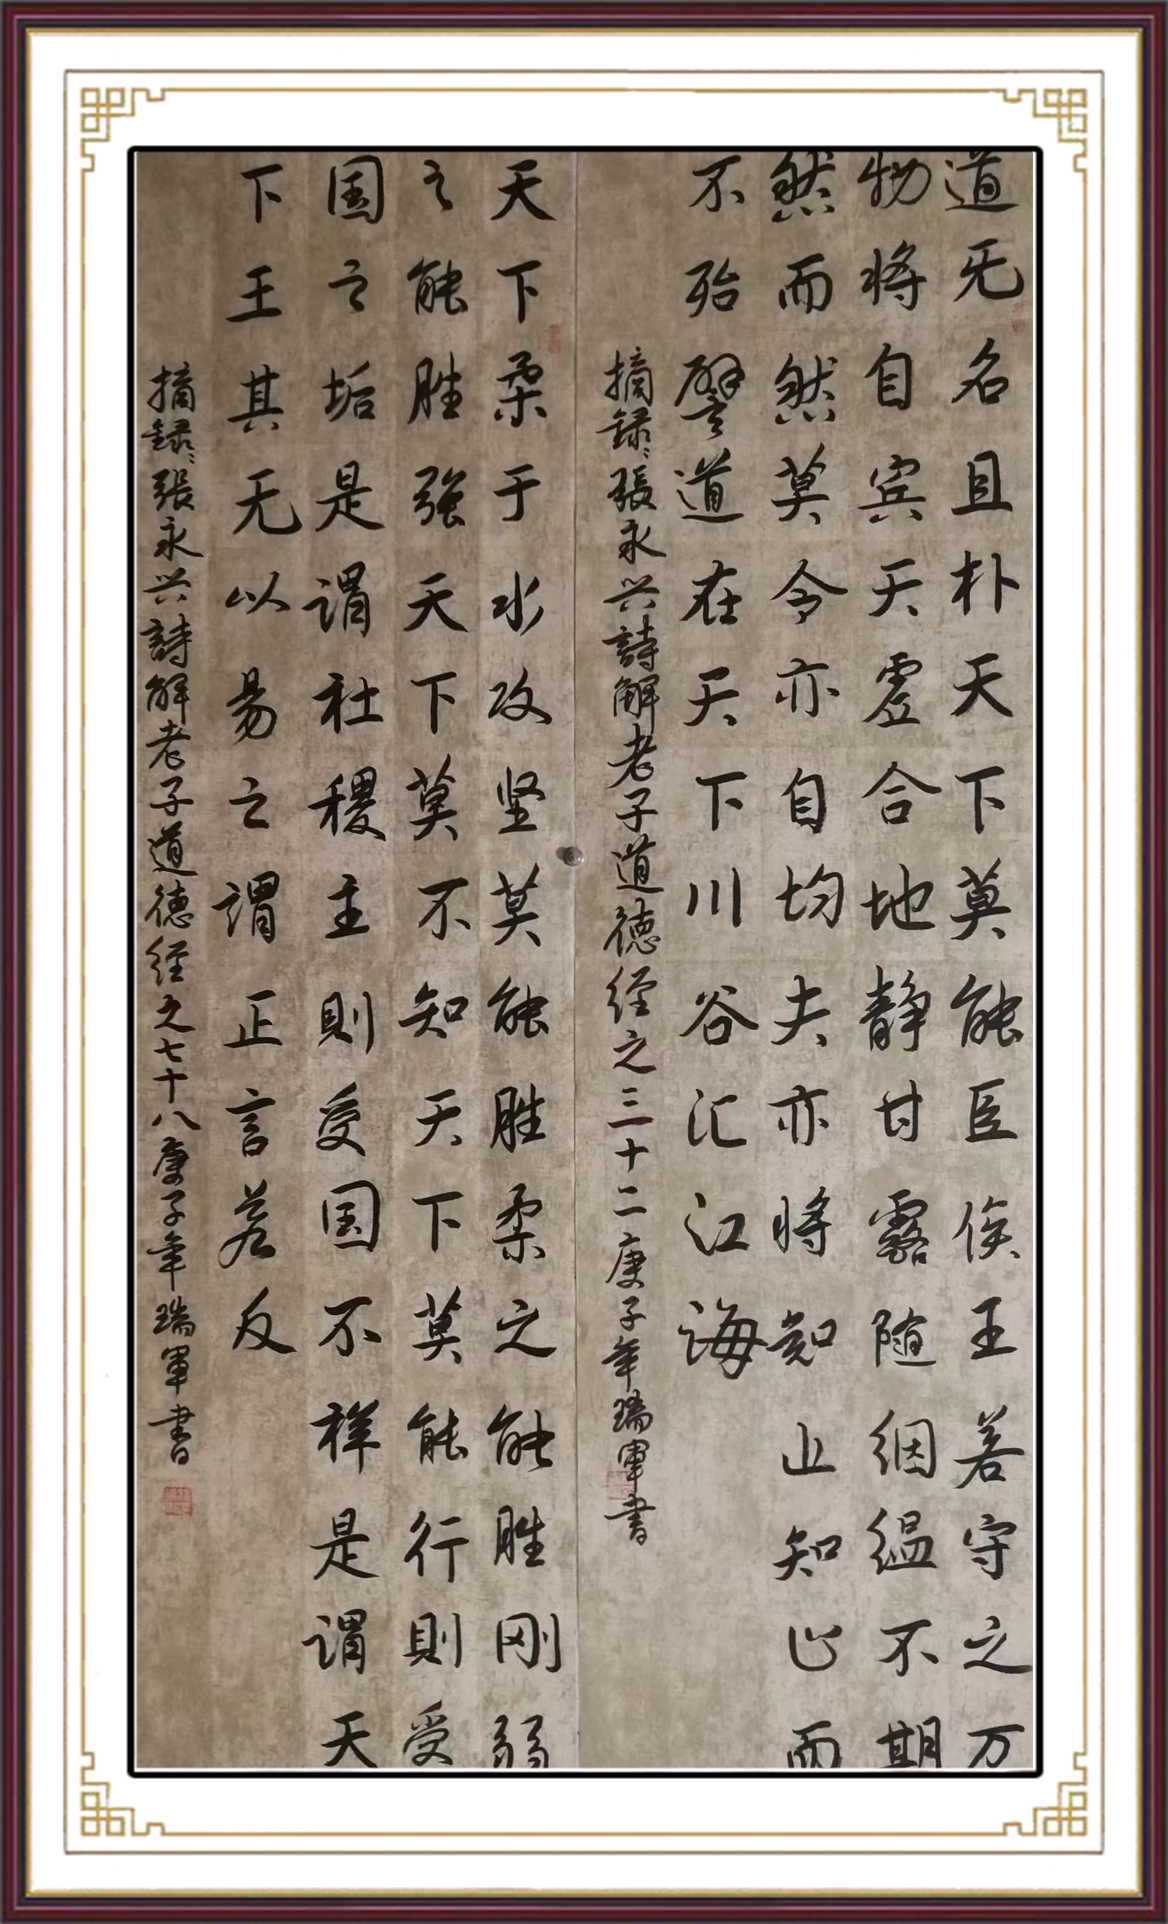 道无名且朴天下莫能臣侯王若守之万
物将自宾天虚合地静甘露随絪缊不期
然而然莫令亦自均夫亦将知止知止而
不殆譬道在天下川谷汇江海
摘録張永兴詩解老子道德经之三十二庚子年瑞軍書
天下柔于水攻坚莫能胜柔之能胜刚弱
之能胜强天下莫不知天下莫能行則受
国之垢是謂社稷主則受国不祥是謂天
下王其无以易之謂正言若反
摘録張永兴詩解老子道德经之七十八庚子年瑞軍書